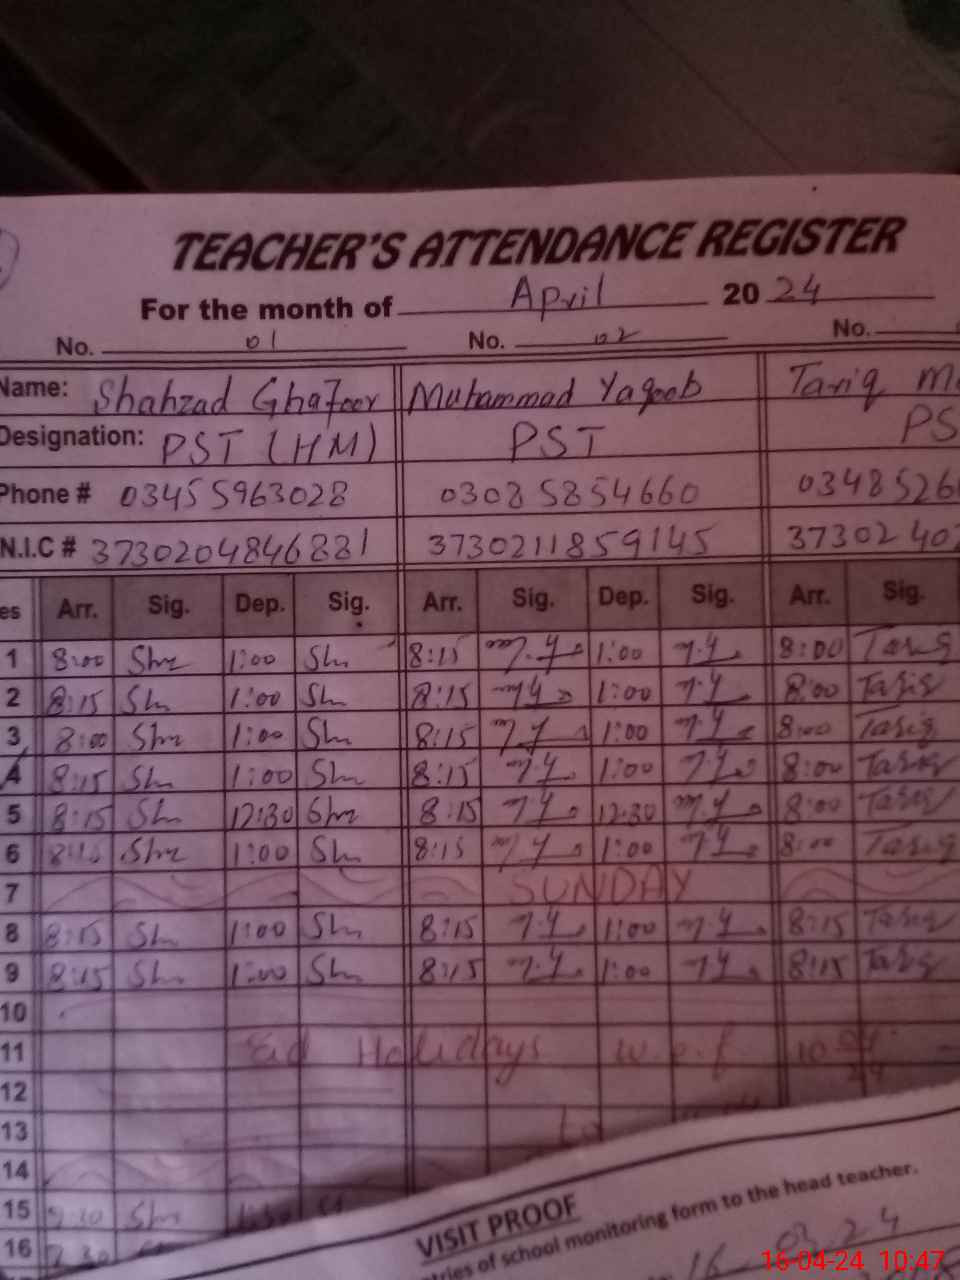 TEACHER'S ATTENDANCE REGISTER
For the month of April 2024
No. 01 No. 02 No.
Name: Shahzad Ghafoor Muhammad Yaqoob Tariq M
Designation: PST (HM) PST PS
Phone # 03455963028 03085854660 0348526
N.I.C # 3730204846881 3730211859145 37302407
es Arr. Sig. Dep. Sig. Arr. Sig. Dep. Sig. Arr. Sig.
1 8:00 Shz 1:00 Sh 8:15 m.y 1:00 m.y 8:00 Tariq
2 8:15 Sh 1:00 Sh 8:15 m.y 1:00 m.y 8:00 Tariq
3 8:00 Shz 1:00 Sh 8:15 m.y 1:00 m.y 8:00 Tariq
4 8:15 Sh 1:00 Sh 8:15 m.y 1:00 m.y 8:00 Tariq
5 8:15 Sh 12:30 Shz 8:15 m.y 12:30 m.y 8:00 Tariq
6 8:15 Shz 1:00 Sh 8:15 m.y 1:00 m.y 8:00 Tariq
7 SUNDAY
8 8:15 Sh 1:00 Sh 8:15 m.y 1:00 m.y 8:15 Tariq
9 8:15 Sh 1:00 Sh 8:15 m.y 1:00 m.y 8:15 Tariq
10
11 Eid Holidays w.e.f 10
12
13 to
14
15 Shz
16 7:30
VISIT PROOF
ntries of school monitoring form to the head teacher.
16-03-24
16-04-24 10:47